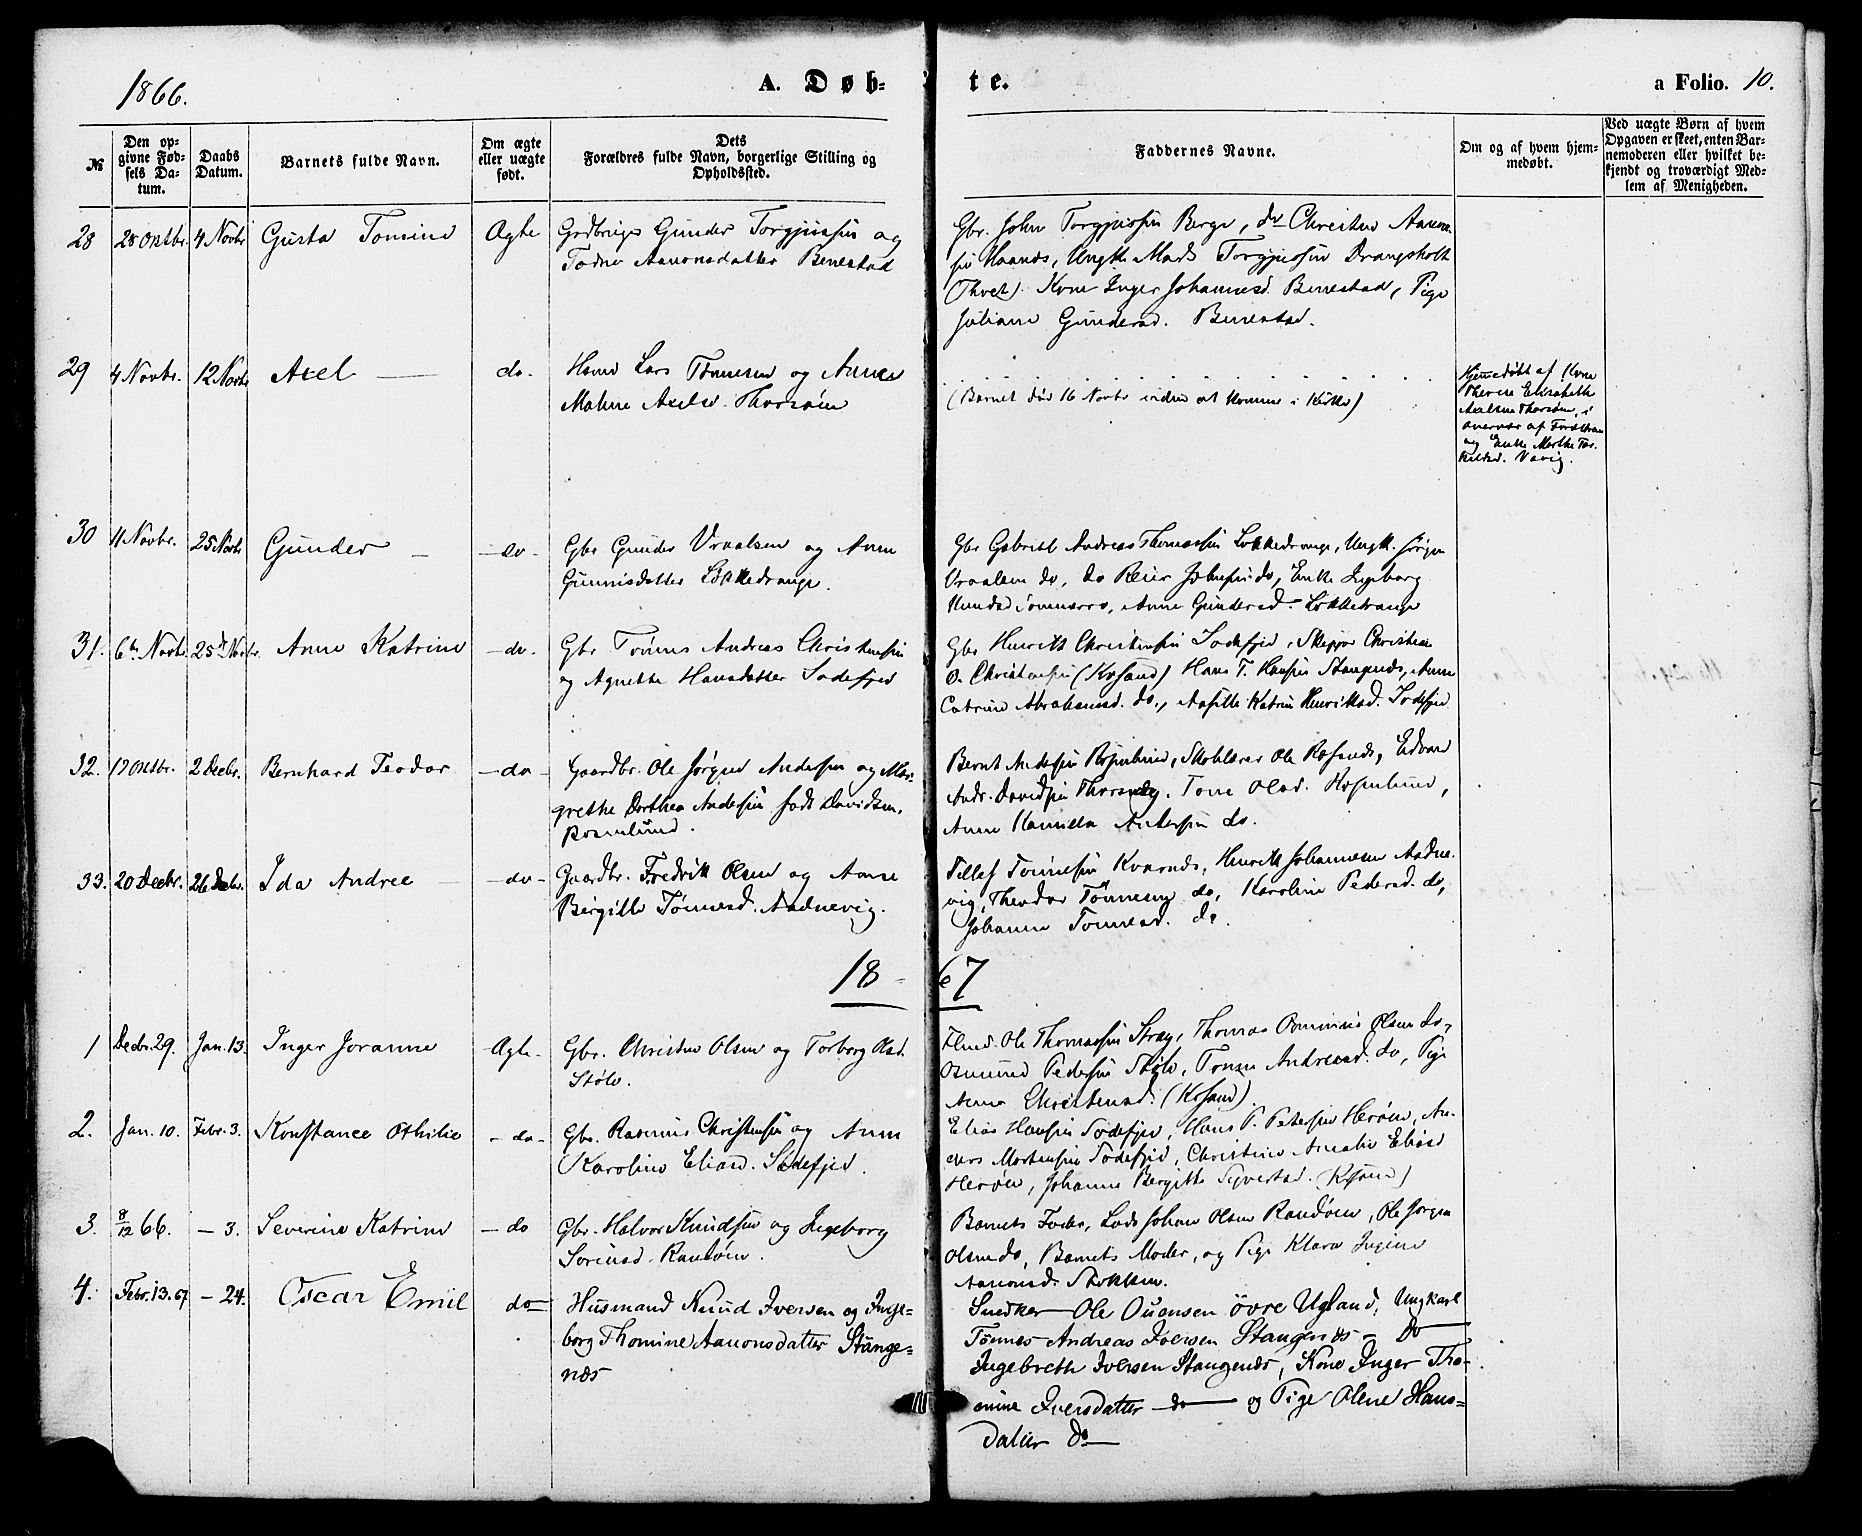 1866.
A. Døb-
te.
a Folio. 10.
№
Den op-
givne Fød-
sels Da-
tum.
Daabs
Datum.
Barnets fulde Navn.
Om ægte
eller uægte
født.
Dets
Forældres fulde Navn, borgerlige Stilling og
Opholdssted.
Faddernes Navne.
Om og af hvem hjem-
medøbt.
Ved uægte Børn af hvem
Opgaven er skeet, enten Bar-
nemoderen eller hvilket be-
kjendt og troværdigt Med-
lem af Menigheden.
28
28 Octbr.
4 Novbr
Gusta Tomine
Ægte
Grdbrugr Gunder Torgjussen og
Todne Aanonsdatter Benestad
Gbr. John Torgjussen Berge, do Christen Aanon-
sen Haanes, Ungk. Mads Torgjussen Drangsholt
(Thvet). Kone Inger Johannesd. Benestad, Pige
Juliane Gundersd. Benestad.
29
4 Novbr.
12 Novbr
Axel —
do.
Lars Tønnesen og Anne
Malene Axelsd. Thorsøen
(Barnet død 16 Novbr inden at komme i Kirke)
Hjemmedøbt af Kone
Therese Elisabeth
Axelsen Thorsøen, i
overvær af Forældrene
og Enke Marthe Tor-
kildsd. Vaavig.
30
11 Novbr.
25 Novbr
Gunder —
— do -
Gbr Gunder Vraalsen og Anne
Gunnisdatter Løkkedrange.
Gbr Gabriel Andreas Thomassen Løkkedrange, Ungk. Jørgen
Vraalsen do, do Reier Johnsen do, Enke Ingeborg
Knudsd Anne Gundersd. Løkkedrange
31.
6te Novbr.
25de Novbr.
Anne Katrine
— do.
Gbr Tønnes Andreas Christensen
og Agnette Hansdatter Sodefjed
Gbr Henrik Christensen Sodefjed, Skipper Christen
O. Christensen (Krsand) Hans T. Hansen Stangenæs, Anne
Catrine Abrahamsd. do., Aasille Katrine Henriksd. Sodefjed
32.
17 Octbr.
2 Decbr.
Bernhard Teodor
— do -
Gaardbr. Ole Jørgen Andersen og Mar-
grethe Dorthea Andersen født Davidsen,
Rosenlund.
Bernt Andersen Rosenlund, Skolelærer Ole Rosenæs, Edvard
Andr. Davidsen Thorsnæs, Tone Olsd. Rosenlund,
Anne Kamilla Andersen do.
33.
20 Decbr.
26 Decbr.
Ida Andree —
— do -
Gaardbr. Fredrik Olsen og Anne
Birgitte Tønnesd. Aadnevig.
Tellef Tønnesen Kvarnæs, Henrik Johannesen Aadne-
vig, Theodor Tønnesen do, Karoline Pedersd. do,
Johanne Tønnesd. do
18 - 67
1
Decbr. 29.
Jan. 13.
Inger Joranne
Ægte.
Gbr. Christen Olsen og Torborg Olsd.
Støle.
Ole Thomassen Straj, Thomas Omunds Olsen do,
Osmund Pedersen Støle, Tomine Andreasd. do, Pige
Anna Christensd. (Krsand).
2.
Jan. 10.
Febr. 3.
Konstance Othilie
— do -
Gbr. Rasmus Christensen og Anne
Karoline Eliasd. Sodefjed.
Elias Hansen Sodefjed, Hans P. Pedersen Herøen, An-
ders Mortensen Sodefjed, Christine Amalie Eliasd
Herøen, Johanne Bergitte Syvertsd. (Krsand)
3.
8/12 66.
— 3.
Severine Katrine
— do
Gbr. Halvor Knudsen og Ingeborg
Sørensd. Randøen.
Barnets Fader, Lods Johan Olsen Randøen, Ole Jørgen
Olsen do, Barnets Moder, og Pige Klara Jugine
Aanonsd. Stokken.
4.
Febr. 13. 67
— 24.
Oscar Emil
do —
Husmand Knud Iversen og Inge-
borg Thomine Aanonsdatter Stange-
næs
Snedker Ole Ouensen øvre Ugland, Ungkarl
Tønnes Andreas Iversen Stangenæs — do —
Ingebreth Iversen Stangenæs, Kone Inger Tho-
mine Iversdatter — do — og Pige Olene Hans-
datter do —